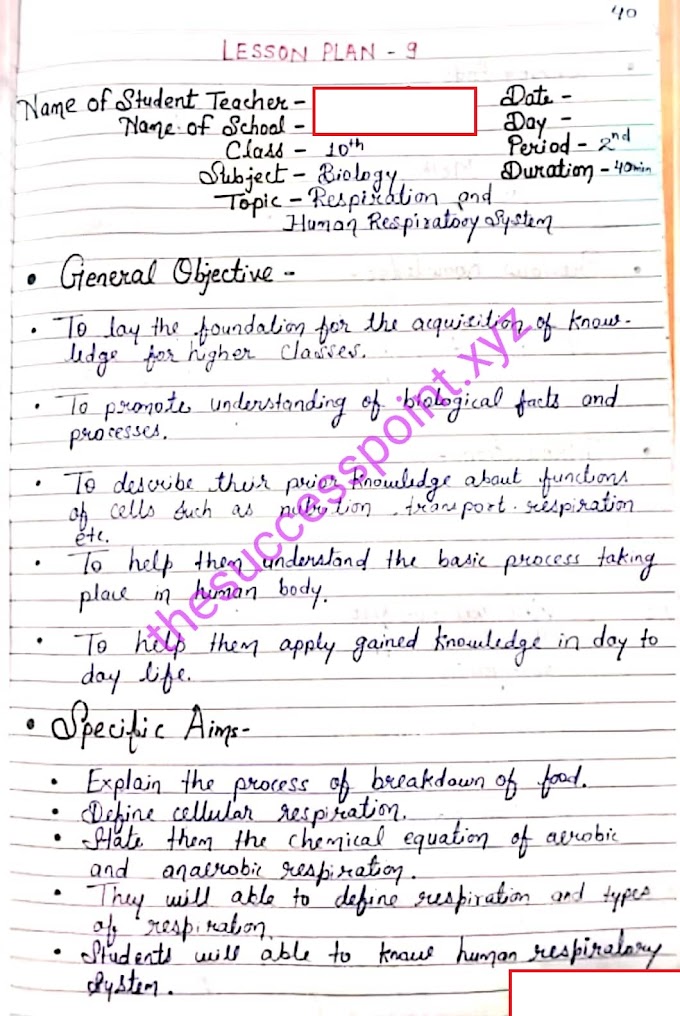 40
LESSON PLAN - 9
Name of Student Teacher -
Date -
Name of School -
Day -
Class - 10th
Period - 2nd
Subject - Biology
Duration - 40min
Topic - Respiration and
Human Respiratory System
• General Objective -
• To lay the foundation for the acquisition of know-
ledge for higher classes.
• To promote understanding of biological facts and
processes.
• To describe their prior knowledge about functions
of cells such as nutrition transport respiration
etc.
• To help them understand the basic process taking
place in human body.
• To help them apply gained knowledge in day to
day life.
• Specific Aims-
• Explain the process of breakdown of food.
• Define cellular respiration.
• State them the chemical equation of aerobic
and anaerobic respiration.
• They will able to define respiration and types
of respiration.
• Students will able to know human respiratory
System.
thesuccesspoint.xyz